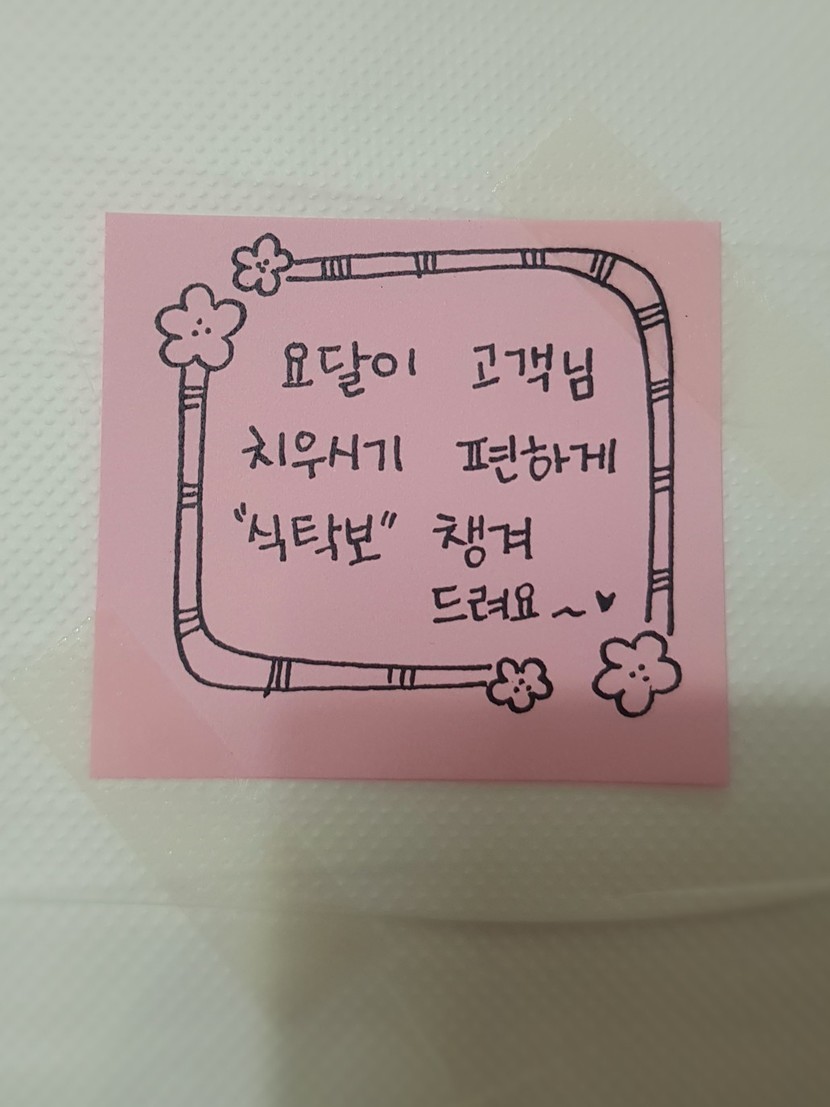 요달이 고객님
치우시기 편하게
"식탁보" 챙겨
드려요~♥